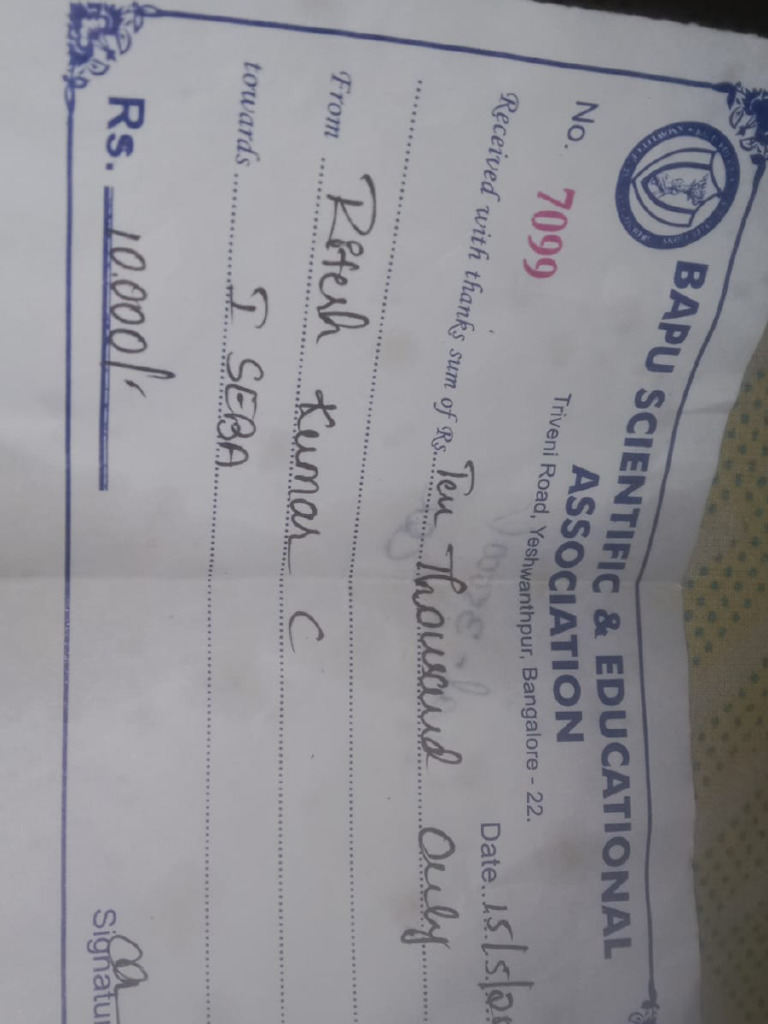 BAPU SCIENTIFIC & EDUCATIONAL
ASSOCIATION
Triveni Road, Yeshwanthpur, Bangalore - 22.
No. 7099
Date..15/5/20
Received with thanks sum of Rs. Ten Thousand Only
From Ritesh Kumar C
towards I SEBA
Rs. 10.000/-
Signatur